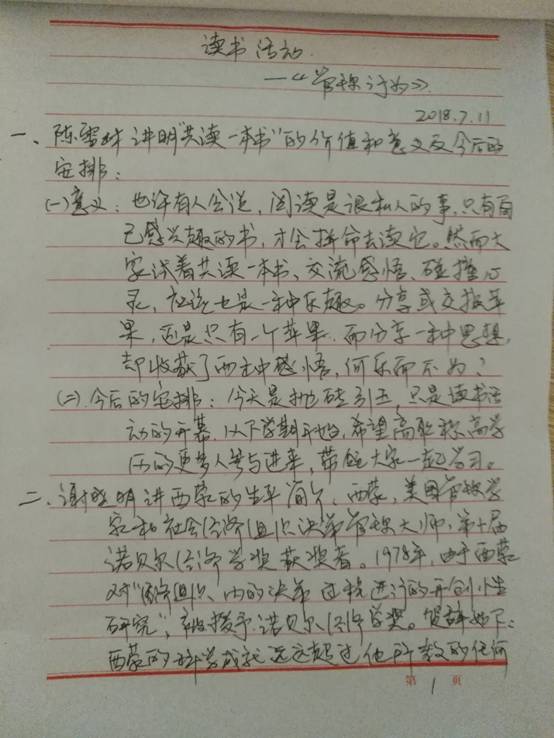 读书活动
—《管理行为》
2018.7.11
一、陈雪林讲明"共读一本书"的价值和意义及今后的
安排:
(一)意义:也许有人会说,阅读是很私人的事,只有自
己感兴趣的书,才会拼命去读它。然而大
家试着共读一本书、交流感悟、碰撞心
灵,应该也是一种乐趣。分享或交换苹
果,还是只有一个苹果,而分享一种思想,
却收获了两种感悟,何乐而不为?
(二)今后的安排:今天是抛砖引玉,只是读书活
动的开幕,从下学期开始,希望高职称高学
历的更多人参与进来,带领大家一起学习。
二、谢明讲西蒙的生平简介,西蒙,美国管理学
家和社会经济组织决策管理大师,第十届
诺贝尔经济学奖获奖者。1978年,由于西蒙
对"经济组织、内的决策过程进行的开创性
研究",被授予诺贝尔经济学奖。贺辞如下:
西蒙的科学成就远远超过他所教的任何
第 1 页